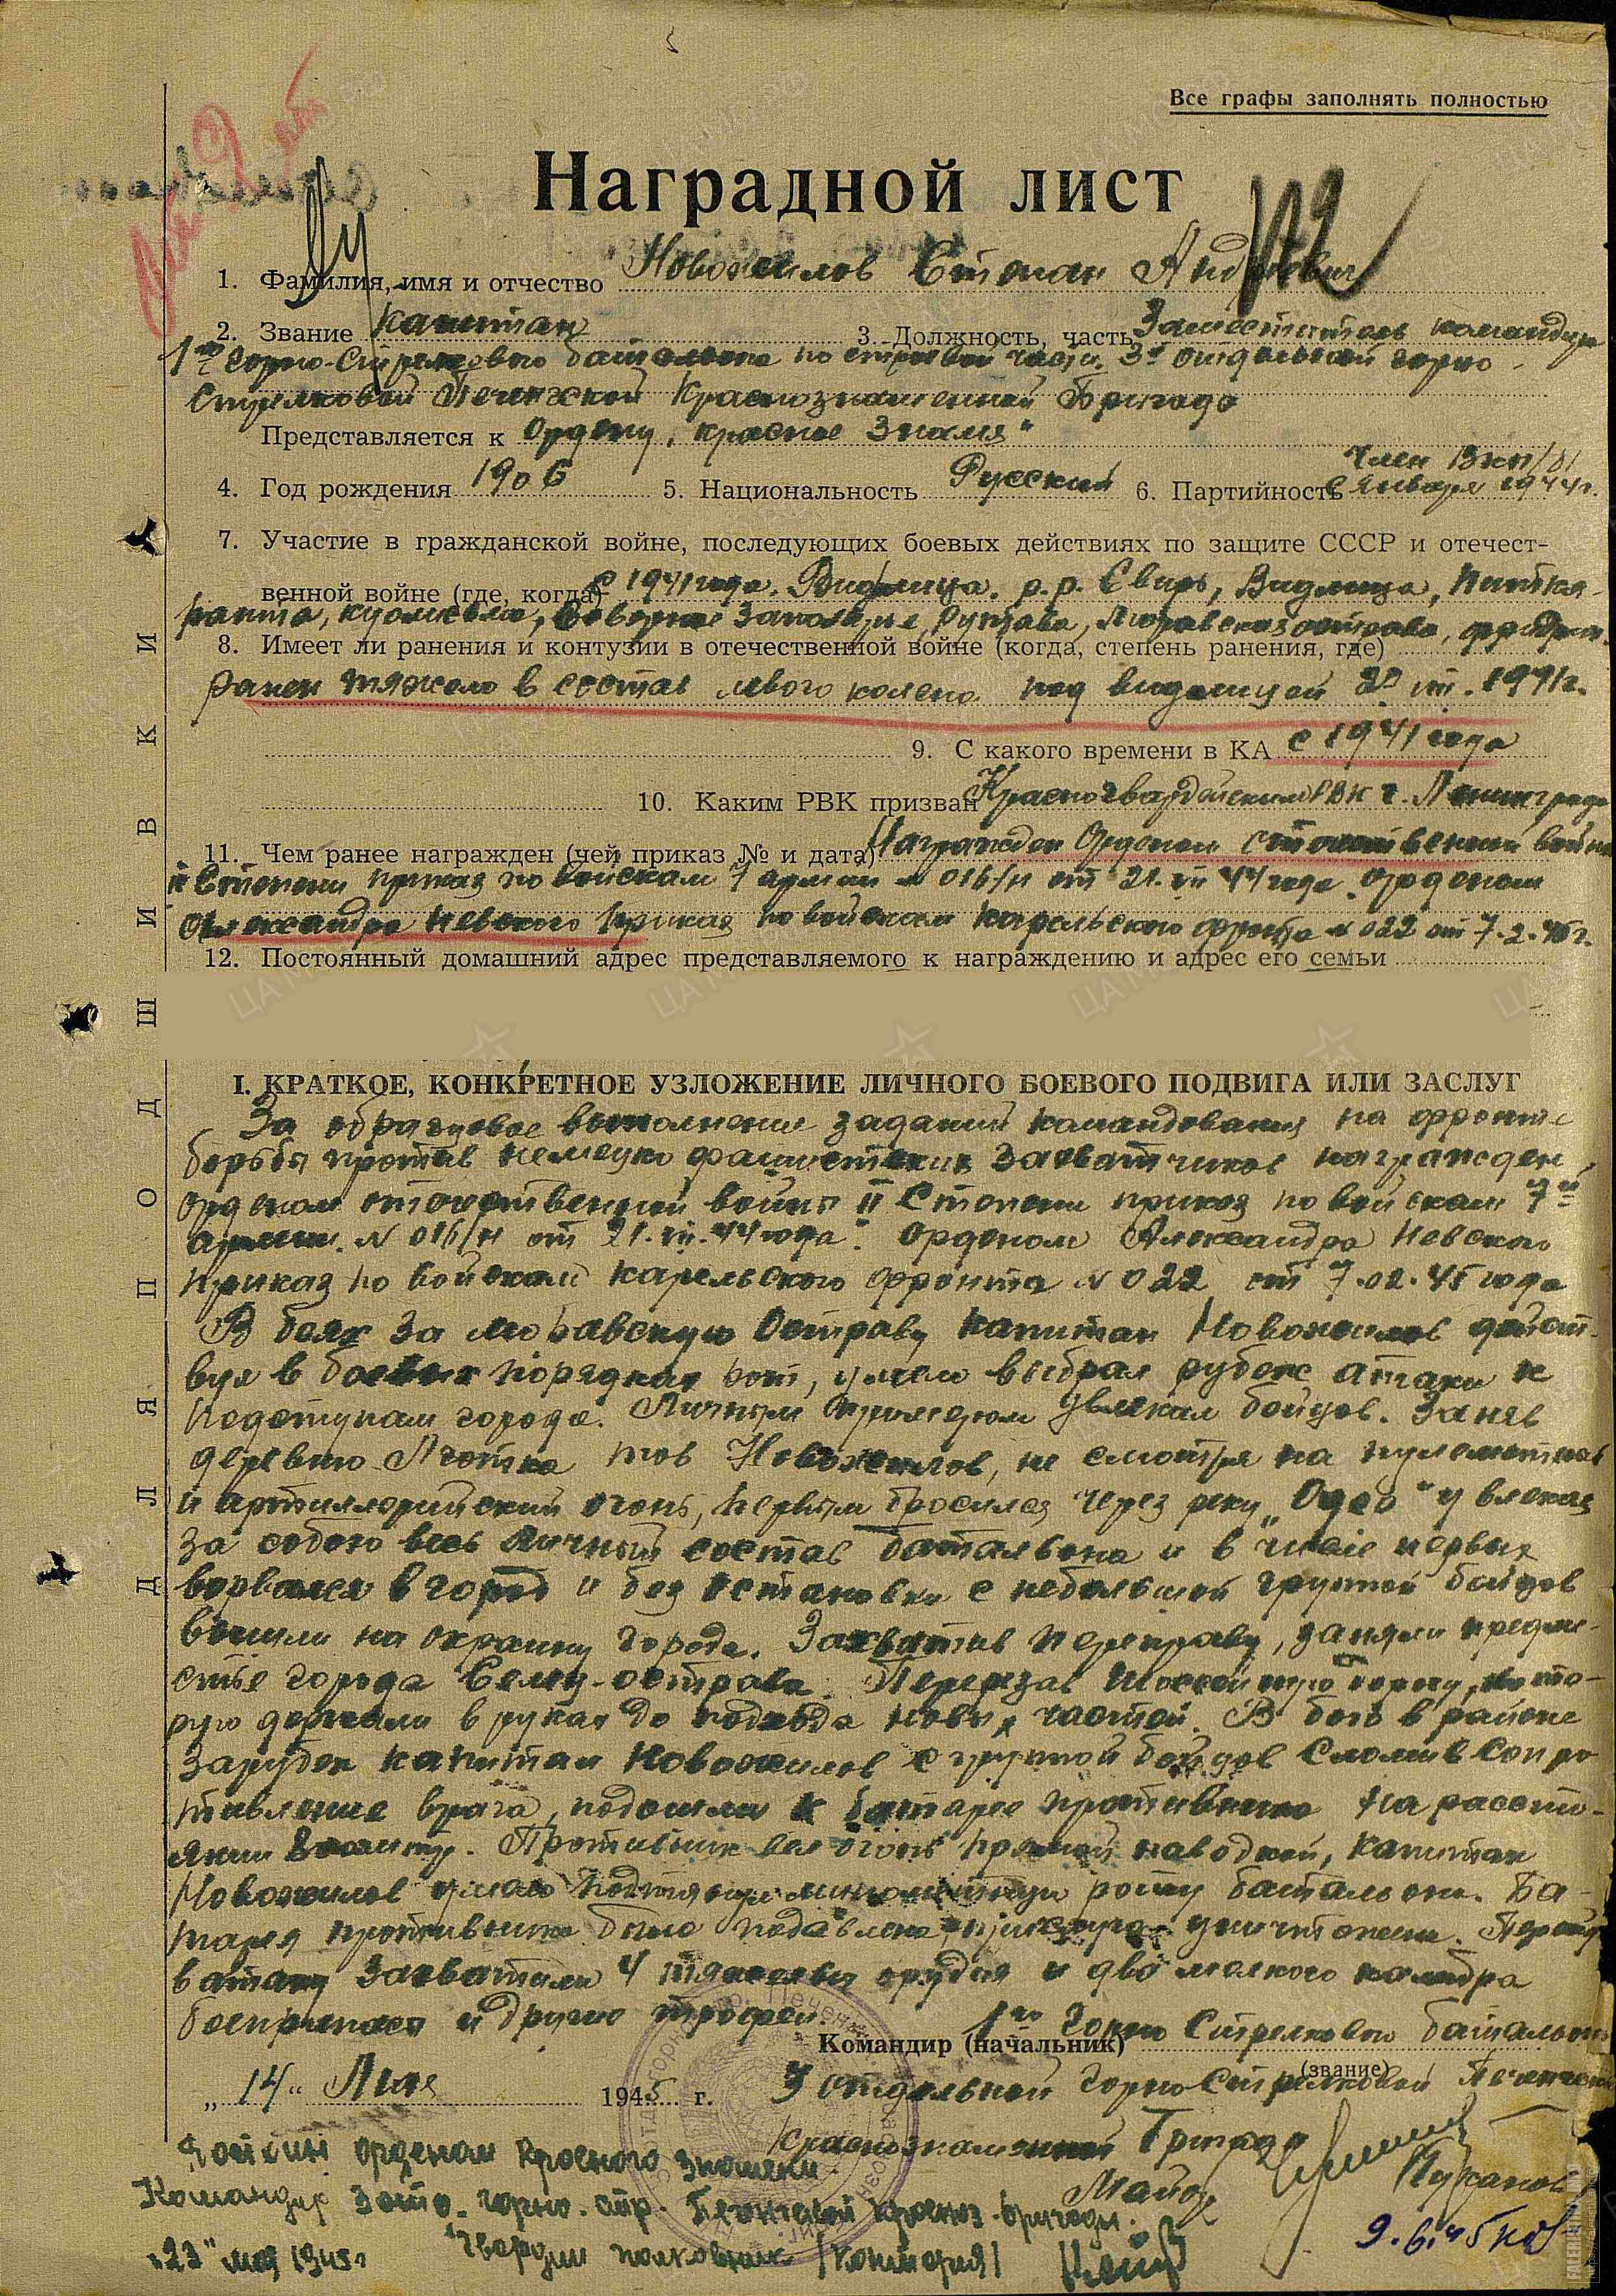 Все графы заполнять полностью
Наградной лист
1. Фамилия, имя и отчество Новожилов Степан Андреевич
2. Звание капитан 3. Должность, часть Заместитель командира
1го Горно-Стрелкового батальона по строевой части 3й отдельной горно
Стрелковой Печенгской Краснознаменной Бригады
Представляется к Ордену „Красное Знамя"
Член ВКП/б/
4. Год рождения 1906 5. Национальность Русский 6. Партийность с января 1944г.
7. Участие в гражданской войне, последующих боевых действиях по защите СССР и отечест-
венной войне (где, когда) с 1941 года. Видлица. р.р. Свирь, Видлица, Питкя-
ранта, Куолисма, Северное Заполярье, Моравская острава,
8. Имеет ли ранения и контузии в отечественной войне (когда, степень ранения, где)
ранен тяжело в состав левого колена под видлицей 1941г.
9. С какого времени в КА с 1941 года
10. Каким РВК призван Красногвардейским РВК г. Ленинграда
11. Чем ранее награжден (чей приказ № и дата) Награжден Орденом Отечественной войны
II Степени приказ по войскам 7 армии № 016/н от 21.VII 44 года. Орденом
Александра Невского приказ по войскам Карельского фронта № 022 от 7.2.45г.
12. Постоянный домашний адрес представляемого к награждению и адрес его семьи
I. КРАТКОЕ, КОНКРЕТНОЕ УЗЛОЖЕНИЕ ЛИЧНОГО БОЕВОГО ПОДВИГА ИЛИ ЗАСЛУГ
За образцовое выполнение заданий командования на фронте
борьбы против немецко фашистских захватчиков награжден
орденом отечественной войны II Степени приказ по войскам 7й
армии. № 016/н от 21.VII.44 года. Орденом Александра Невского
приказ по войскам Карельского фронта № 022 от 7.02.45 года
В боях за моравскую Остраву капитан Новожилов дейст-
вуя в боевых порядках рот, умело выбрал рубеж атаки к
подступам города. Личным примером увлекал бойцов. Заняв
деревню тов Новожилов, не смотря на пулеметный
и артиллерийский огонь, первым бросился через реку „Одер" увлекая
за собою весь личный состав батальона и в числе первых
ворвался в город и без остановки с небольшой группой бойцов
вышли на окраину города. Захватив переправу, заняли предме-
стье города острава. Перерезав шоссейную дорогу, кото-
рую держали в руках до подхода новых частей. В бою в районе
Зарубек капитан Новожилов с группой бойцов сломив сопро-
тивление врага, подошли к батарее противника на рассто-
янии Противник вел огонь прямой наводкой, капитан
Новожилов умело подтянул минометную роту батальона. Ба-
тарея противника была подавлена, прислуга уничтожена. Перейдя
в атаку захватили 4 тяжелых орудия и два мелкого калибра
боеприпасы и другие трофеи.
Командир (начальник) 1го Горно Стрелкового батальона
(звание)
„14" Мая 1945 г. 3 отдельной Горно-Стрелковой Печенгской
Краснознаменной Бригады
Майор
Достоин орденом Красного Знамени.
Командир 3 отд. горно-стр. Печенгской Красноз. бригады.
Гвардии полковник
„23" мая 1945г